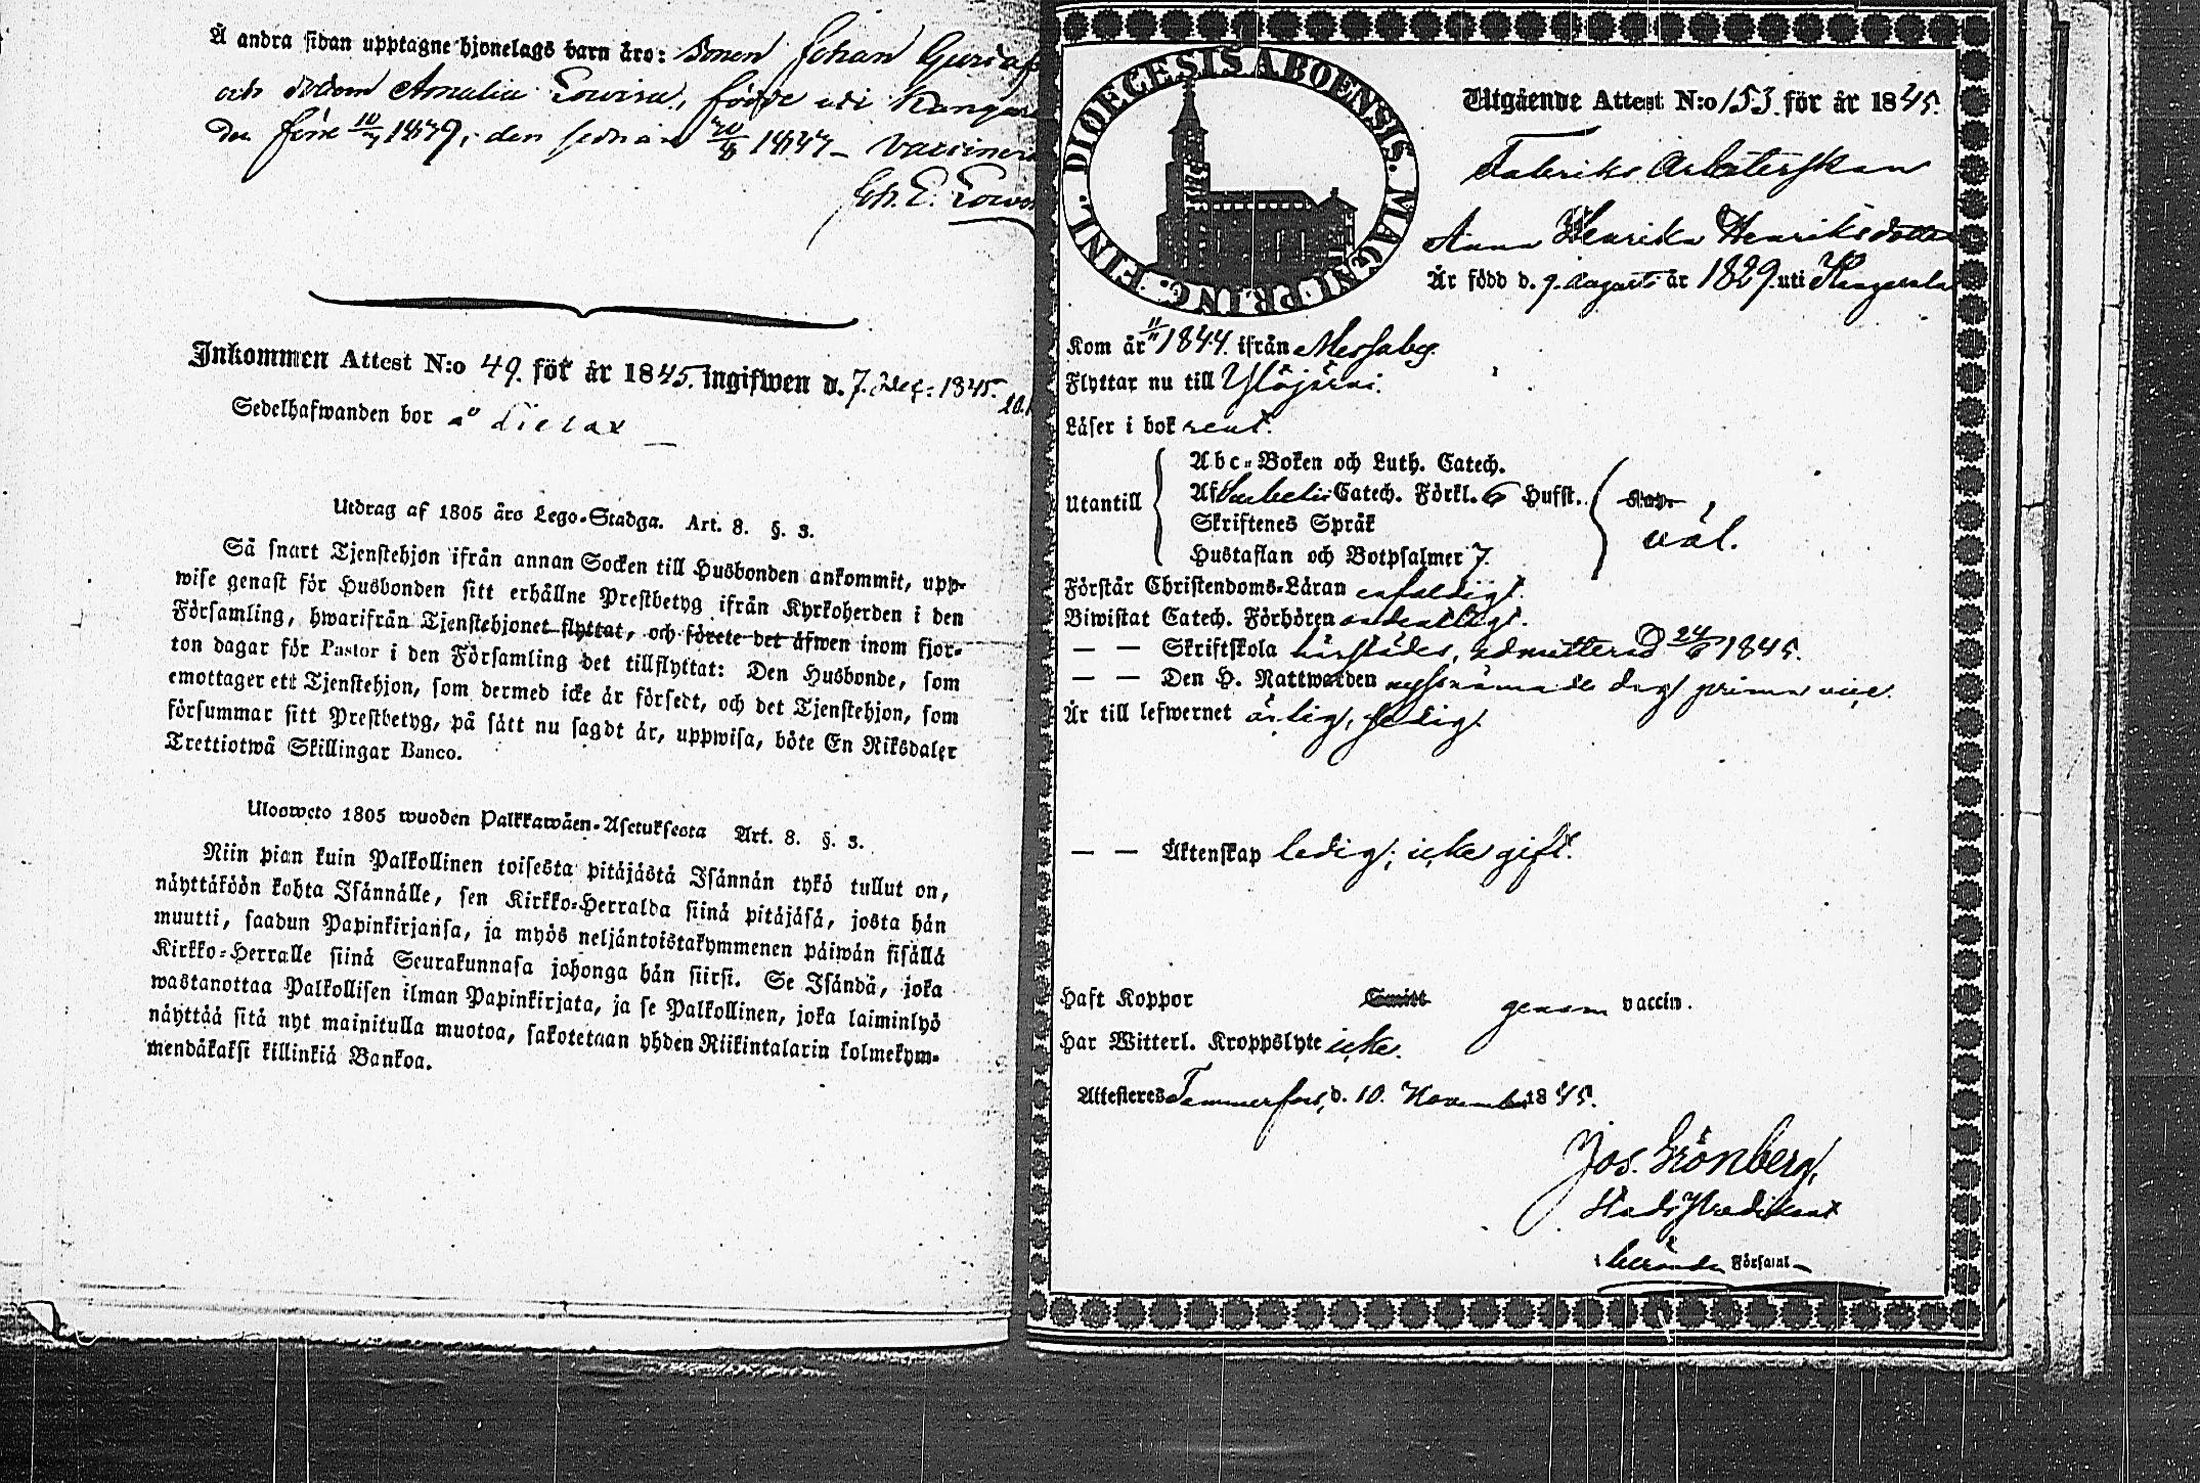 Å andra sidan upptagne hjonelags barn äro: Sonen Johan Gustaf
och dottern Amalia Lowisa, födde uti Kangas
den förre 10/7 1839; den sednare 1847 – Vaccinera
Joh. E.
Inkommen Attest N:o 49. för år 1845. ingifwen d. 7. Dec: 1845.
Sedelhafwanden bor å
Utdrag af 1805 års Lego-Stadga. Art. 8. §. 3.
Så snart Tjenstehjon ifrån annan Socken till Husbonden ankommit, upp-
wise genast för Husbonden sitt erhållne Prestbetyg ifrån Kyrkoherden i den
Församling, hwarifrån Tjenstehjonet flyttat, och förete det äfwen inom fjor-
ton dagar för Pastor i den Församling det tillflyttat: Den Husbonde, som
emottager ett Tjenstehjon, som dermed icke är försedt, och det Tjenstehjon, som
försummar sitt Prestbetyg, på sätt nu sagdt är, uppwisa, böte En Riksdaler
Trettiotwå Skillingar Banco.
Uloosweto 1805 wuoden Palkkawäen-Asetuksesta Art. 8. §. 3.
Niin pian kuin Palkollinen toisesta pitäjästä Isännän tykö tullut on,
näyttäköön kohta Isännälle, sen Kirkko-Herralda siinä pitäjäsä, josta hän
muutti, saadun Papinkirjansa, ja myös neljäntoistakymmenen päiwän sisällä
Kirkko-Herralle siinä Seurakunnasa johonga hän siirsi. Se Isändä, joka
wastanottaa Palkollisen ilman Papinkirjata, ja se Palkollinen, joka laiminlyö
näyttää sitä nyt mainitulla muotoa, sakotetaan yhden Riikintalarin kolmekym-
mendäkaksi killinkiä Bankoa.
DIOECESIS ABOENSIS. MAGNI PRINC. FINL.
Utgående Attest N:o 153. för år 1845.
Fabriks Arbeterskan
Anna Henrika Henriksdotter
Är född d. 9. Augusti år 1829. uti Kangasala
Kom år 1844. ifrån Messuby.
Flyttar nu till Ylöjärvi.
Läser i bok rent.
Utantill
Abc-Boken och Luth. Catech.
Af Svebelii Catech. Förkl. 6 Hufst.
Skriftenes Språk
Hustaflan och Botpsalmer 7.
väl.
Förstår Christendoms-Läran enfaldigt.
Biwistat Catech. Förhören ordentligt.
— — Skriftskola härstädes, admitterad 24/6 1845.
— — Den H. Nattwarden nyssnämnde dag prima vice.
Är till lefwernet ärlig, sedig.
— — Äktenskap ledig; icke gift.
Haft Koppor genom vaccin.
Har Witterl. Kroppslyte icke.
Attesteres Tammerfors, d. 10. November 1845.
Jos. Grönberg,
Stads Predikant
i berörde Församl.